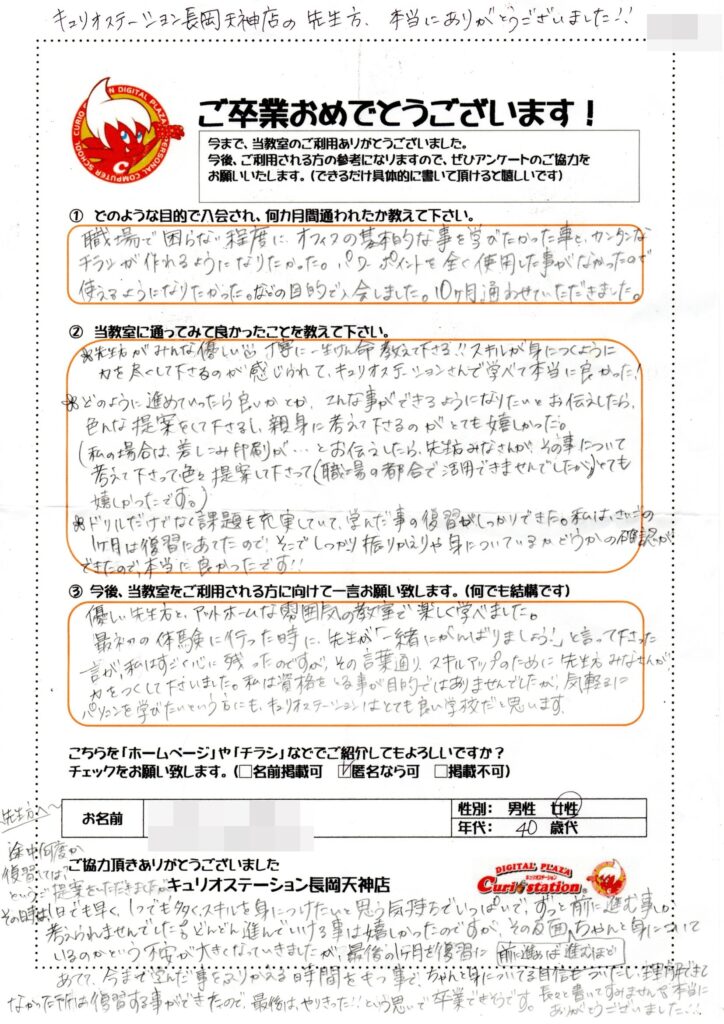 キュリオステーション長岡天神店の先生方、本当にありがとうございました!!
CURIO STATION DIGITAL PLAZA PERSONAL COMPUTER SCHOOL
ご卒業おめでとうございます！
今まで、当教室のご利用ありがとうございました。
今後、ご利用される方の参考になりますので、ぜひアンケートのご協力を
お願いいたします。（できるだけ具体的に書いて頂けると嬉しいです）
① どのような目的で入会され、何カ月間通われたか教えて下さい。
職場で困らない程度に、オフィスの基本的な事を学びたかった事と、カンタンな
チラシが作れるようになりたかった。パワーポイントを全く使用した事がなかったので
使えるようになりたかった。などの目的で入会しました。10ヶ月通わせていただきました。
② 当教室に通ってみて良かったことを教えて下さい。
※先生方がみんな優しい!!丁寧に一生けん命教えて下さる!!スキルが身につくように
力を尽くして下さるのが感じられて、キュリオステーションさんで学べて本当に良かった!
※どのように進めていったら良いかとか、こんな事ができるようになりたいとお伝えしたら、
色んな提案をして下さるし、親身に考えて下さるのがとても嬉しかった。
(私の場合は、差しこみ印刷が…とお伝えしたら、先生方みなさんが、その事について
考えて下さって色々提案して下さって(職場の都合で活用できませんでしたが)とても
嬉しかったです。)
※ドリルだけでなく課題も充実していて、学んだ事の復習がしっかりできた。私は、さいごの
1ヶ月は復習にあてたので、そこでしっかり振りかえりや身についているかどうかの確認が
できたので、本当に良かったです!!
③ 今後、当教室をご利用される方に向けて一言お願い致します。（何でも結構です）
優しい先生方と、アットホームな雰囲気の教室で楽しく学べました。
最初の体験に行った時に、先生が「一緒にがんばりましょう!」と言って下さった
言が、私はすごく心に残ったのですが、その言葉通り、スキルアップのために先生方みなさんが
力をつくして下さいました。私は資格をとる事が目的ではありませんでしたが、気軽に
パソコンを学びたいという方にも、キュリオステーションはとても良い学校だと思います。
こちらを「ホームページ」や「チラシ」などでご紹介してもよろしいですか？
チェックをお願い致します。（□名前掲載可　☑匿名なら可　□掲載不可）
お名前
性別： 男性 女性
年代： 40 歳代
ご協力頂きありがとうございました
キュリオステーション長岡天神店
DIGITAL PLAZA
キュリオステーション
Curio station
先生方へ〜
途中何度か
復習しては?
というご提案をいただきましたが
その時は1日でも早く、1つでも多くスキルを身につけたいと思う気持ちでいっぱいで、ずっと前に進む事しか
考えられませんでした。どんどん進んでいける事は嬉しかったのですが、その反面、ちゃんと身について
いるのかという不安が大きくなっていきましたが、最後の1ヶ月を復習に
前に進めば進むほど
あてて、今まで学んだ事をふりかえる時間をもつ事で、ちゃんと身についてる自信もついたし、理解できて
なかった所は復習する事ができたので、最後は、やりきった!!という思いで卒業できそうです。
長々と書いてすみません。本当に
ありがとうございました!!